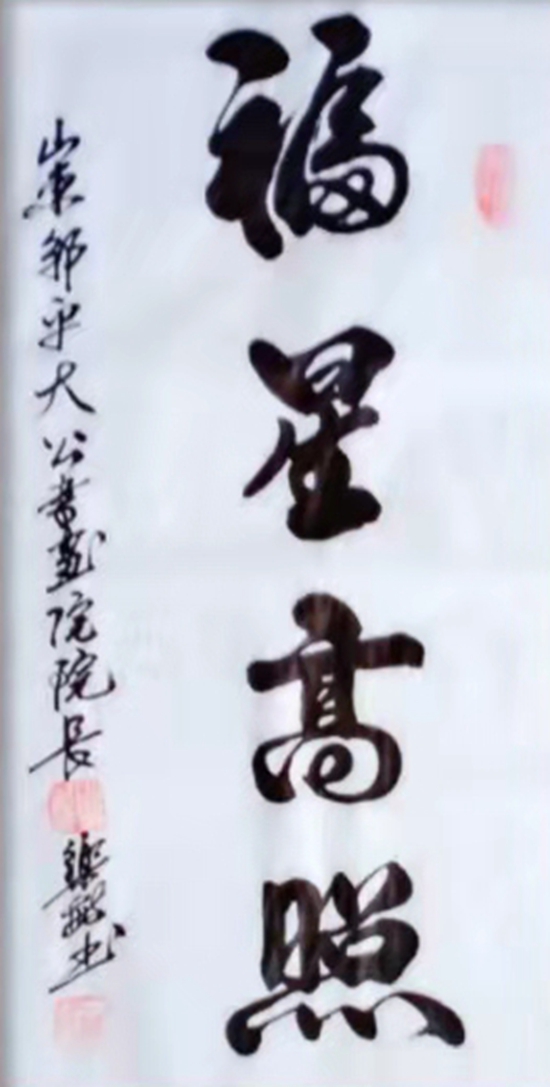 福星高照
山東邹平大公書画院院長
书